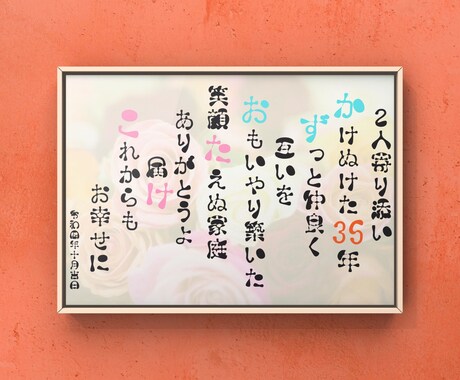 2人寄り添い
かけぬけた35年
ずっと仲良く
互いを
おもいやり築いた
笑顔たえぬ家庭
ありがとうよ
届け
これからも
お幸せに
令和四年十月吉日